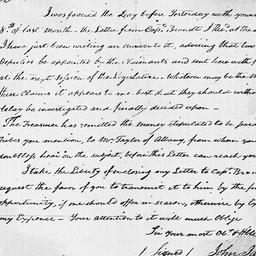 I was favored the Day before Yesterday with your
8th of last month - the Letter from Capt. Brandt I Rec'd at the
I have just been writing an answer to it, advising that two
Deputies be appointed by the Claimants and sent here with
at the next Session of the Legislature - Whatever may be the
these Claims it appears to me best that they should without
delay be investigated and finally decided upon -
The Treasurer has remitted the money stipulated to be paid
Tribes you mention, to Mr. Taylor of Albany, from whom you
doubtless hear on the subject, before this Letter can reach you
I take the Liberty of enclosing my Letter to Capt. Brandt
request the favor of you to transmit it to him by the
opportunity, if one should offer in season, otherwise by
my Expence - Your attention to it will much Oblige
Sir Your most Ob. & Hble
(Signed) John